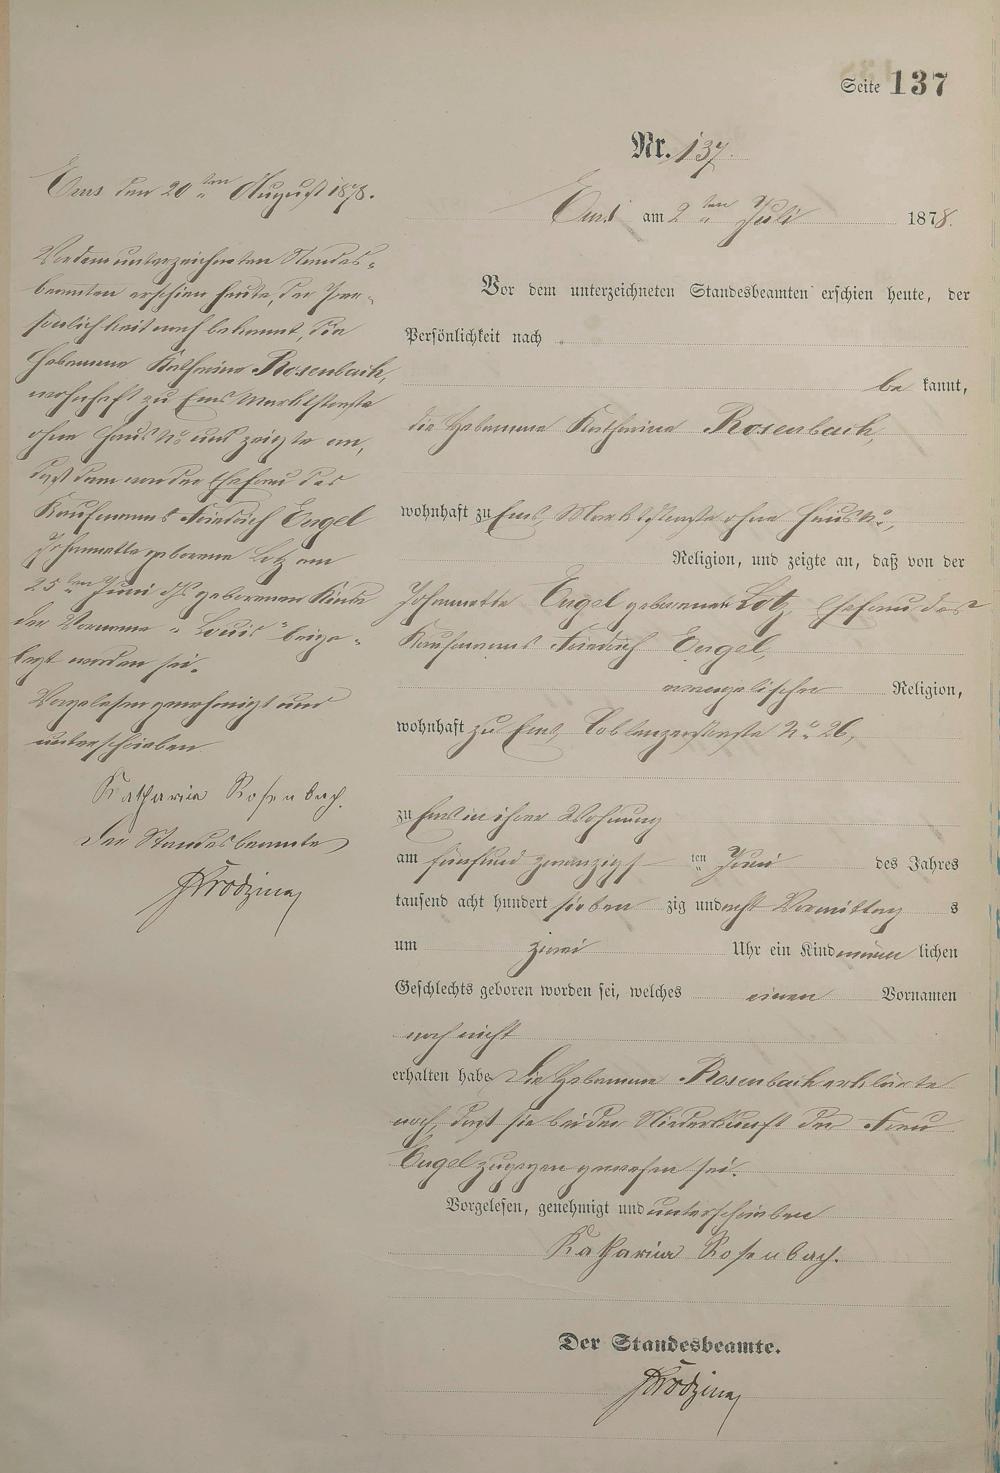 Seite 137
Nr. 137.
Ems am 2ten Juli 1878.
Vor dem unterzeichneten Standesbeamten erschien heute, der
Persönlichkeit nach
be kannt,
die Hebamme Katharina Rosenbach,
wohnhaft zu Ems, Marktstraße ohne Haus No.,
Religion, und zeigte an, daß von der
Johannette Engel geborenen Lotz, Ehefrau des
Kaufmanns Friedrich Engel,
evangelischer Religion,
wohnhaft zu Ems, Coblenzerstraße No. 26,
zu Ems in ihrer Wohnung
am fünfund zwanzigs ten Juni des Jahres
tausend acht hundert sieben zig und acht Vormittag s
um zwei Uhr ein Kind männ lichen
Geschlechts geboren worden sei, welches einen Vornamen
noch nicht
erhalten habe. Die Hebamme Rosenbach erklärte
noch, daß sie bei der Niederkunft der Frau
Engel zugegen gewesen sei.
Vorgelesen, genehmigt und unterschrieben
Katharina Rosenbach.
Der Standesbeamte.
Ems den 20ten August 1878.
Vor dem unterzeichneten Standes-
beamten erschien heute, der Per-
sönlichkeit nach bekannt, die
Hebamme Katharina Rosenbach,
wohnhaft zu Ems Marktstraße
ohne Haus No und zeigte an,
daß dem von der Ehefrau des
Kaufmanns Friedrich Engel
Johannette geborene Lotz am
25ten Juni djs geborenen Kinde
der Vorname „Louis" beige-
legt worden sei.
Vorgelesen genehmigt und
unterschrieben
Katharina Rosenbach.
Der Standesbeamte